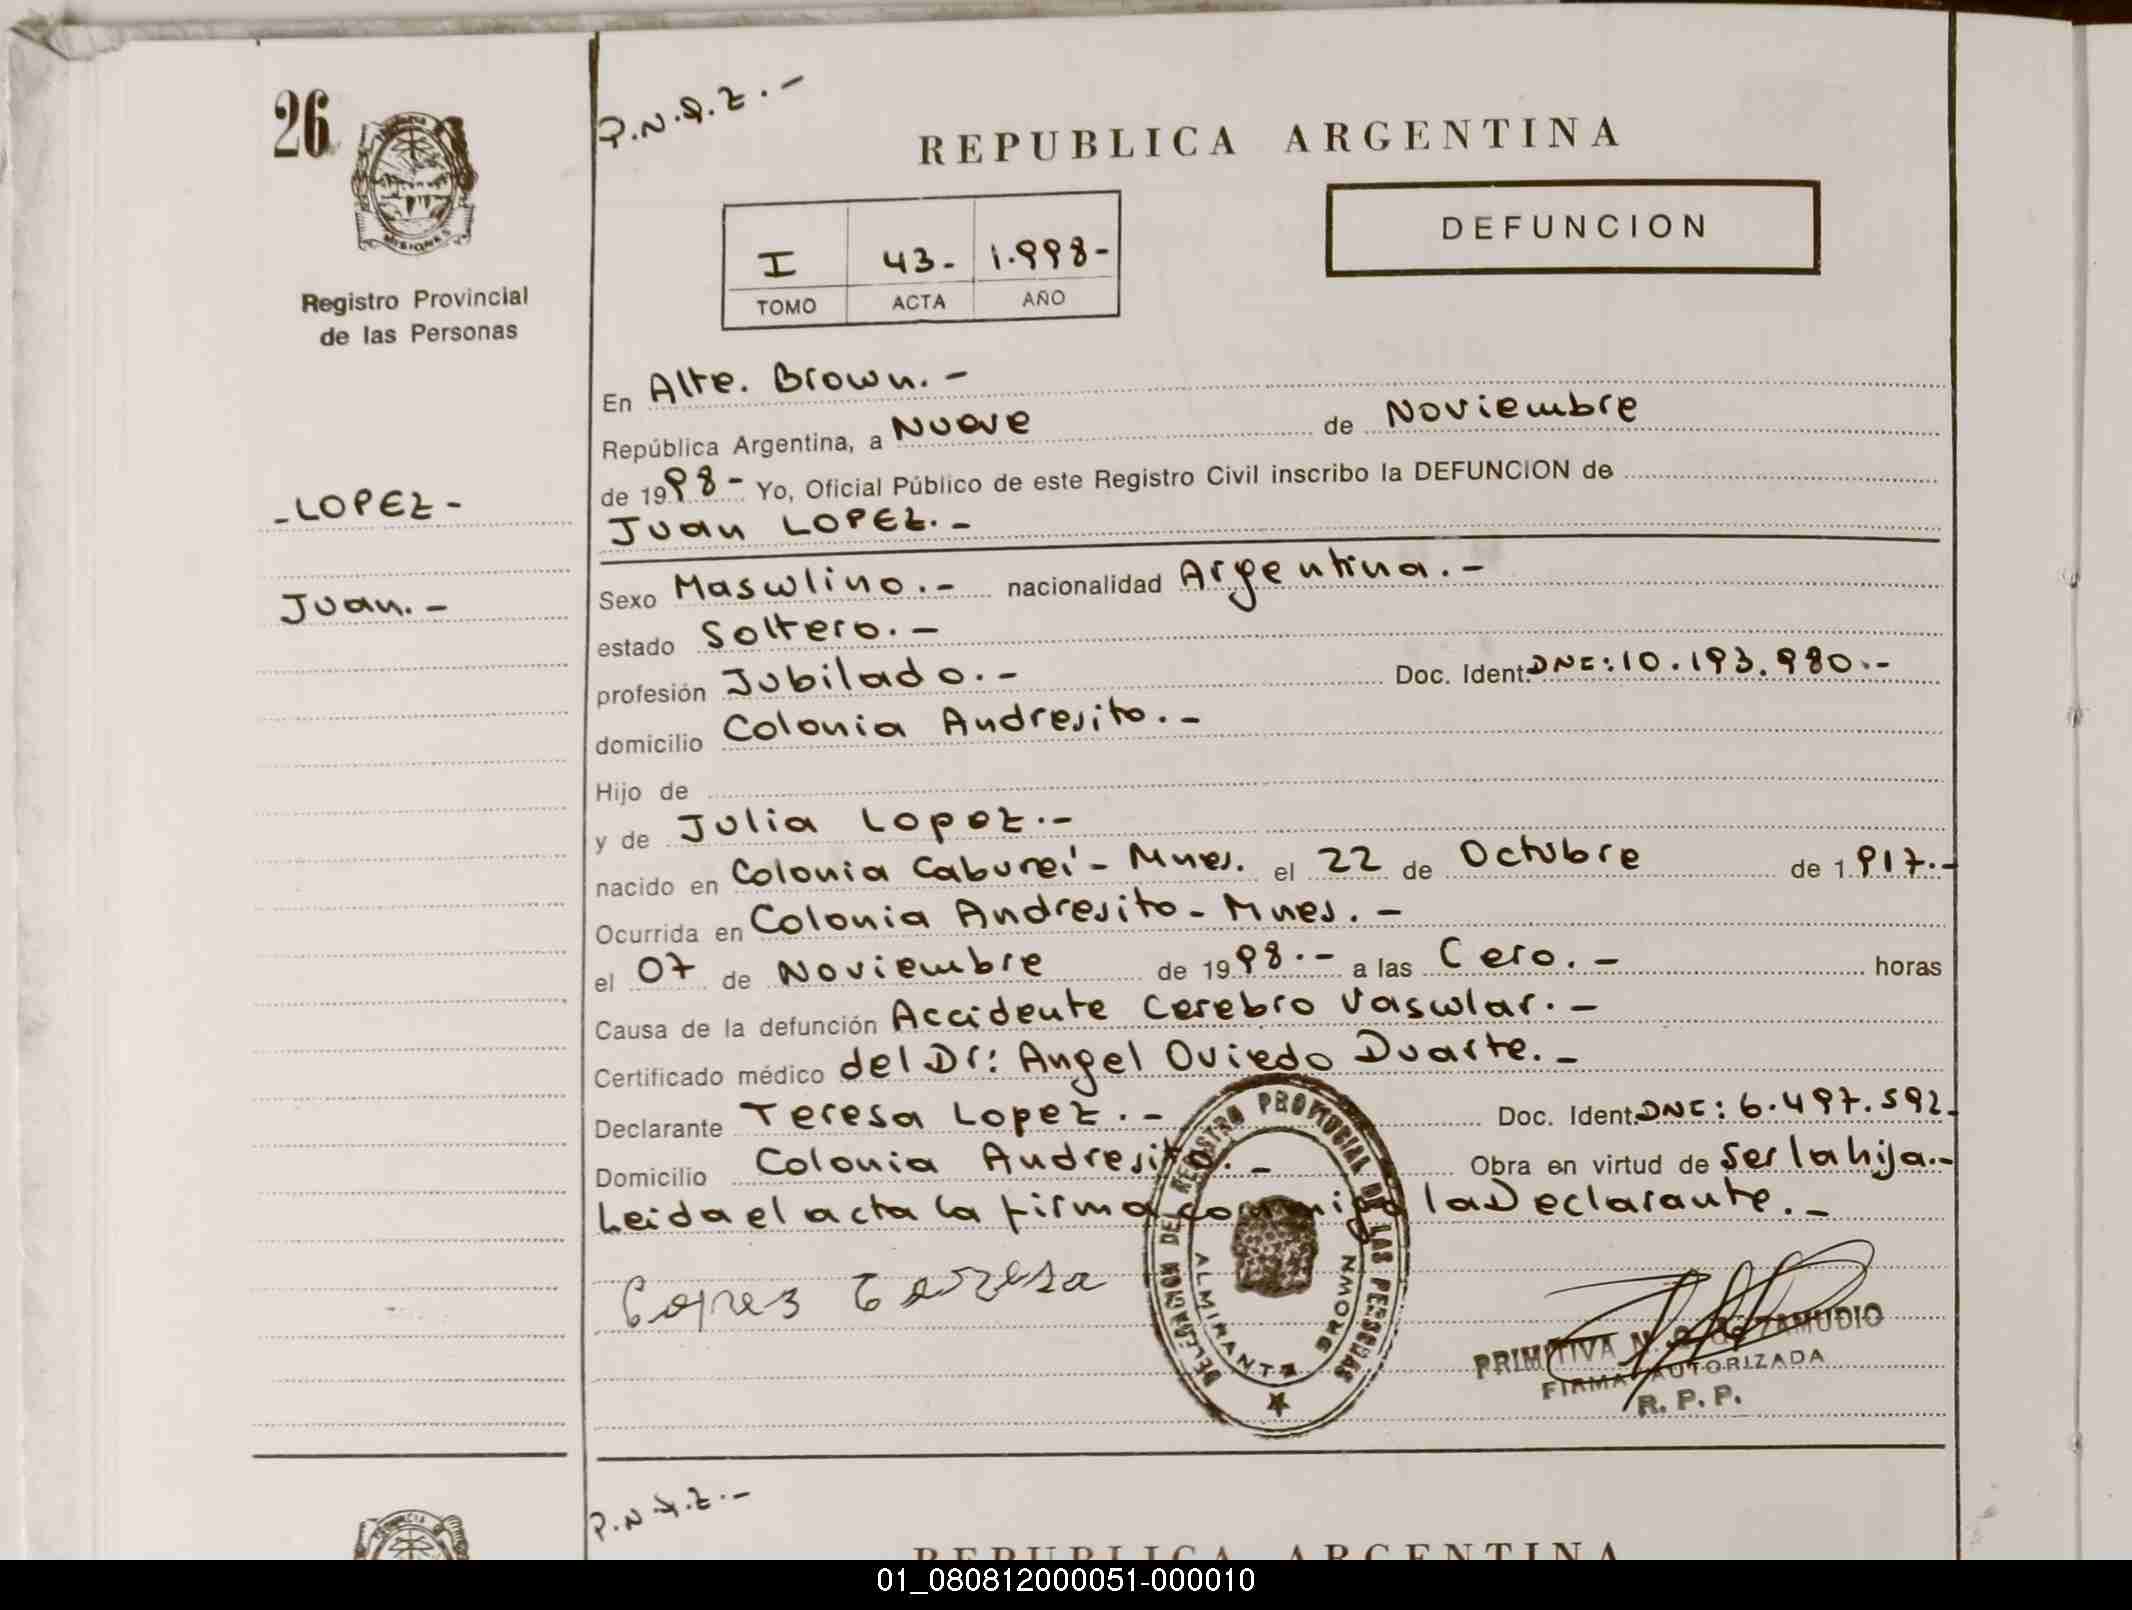 26
P.N.A.Z.-
REPUBLICA ARGENTINA
DEFUNCION
I 43- 1.998-
TOMO ACTA AÑO
Registro Provincial
de las Personas
En Alte. Brown.-
República Argentina, a Nueve de Noviembre
de 1998- Yo, Oficial Público de este Registro Civil inscribo la DEFUNCION de
-LOPEZ-
Juan LOPEZ.-
Juan.-
Sexo Masculino.- nacionalidad Argentina.-
estado Soltero.-
profesión Jubilado.- Doc. Ident. DNI: 10.193.980.-
domicilio Colonia Andresito.-
Hijo de
y de Julia Lopez.-
nacido en Colonia Cabureí- Mnes. el 22 de Octubre de 1917.-
Ocurrida en Colonia Andresito- Mnes.-
el 07 de Noviembre de 1998.- a las Cero.- horas
Causa de la defunción Accidente Cerebro Vascular.-
Certificado médico del Dr: Angel Oviedo Duarte.-
Declarante Teresa Lopez.- Doc. Ident. DNI: 6.497.592.
Domicilio Colonia Andresito.- Obra en virtud de Ser la hija.-
Leida el acta la firma conmigo la Declarante.-
Lopez Teresa
DELEGACION DEL REGISTRO PROVINCIAL DE LAS PERSONAS
ALMIRANTE BROWN
PRIMITIVA N. ZAMUDIO
FIRMA AUTORIZADA
R. P. P.
P.N.A.Z.-
REPUBLICA ARGENTINA
01_080812000051-000010